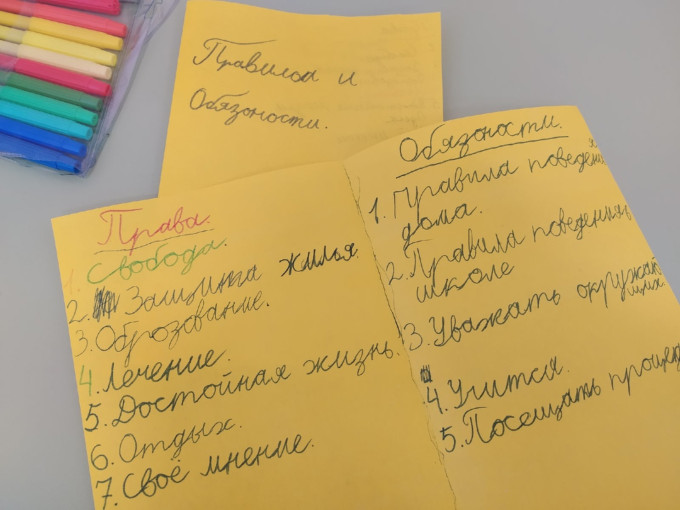 Правила и
Обязоности.
Права.
1. Свобода.
2. Защита жилья.
3. Оброзование.
4. Лечение.
5. Достойная жизнь.
6. Отдых.
7. Своё мнение.
Обязоности.
1. Правила поведения
дома.
2. Правила поведения
школе
3. Уважать окружаю
щих
4. Учится.
5. Посещать